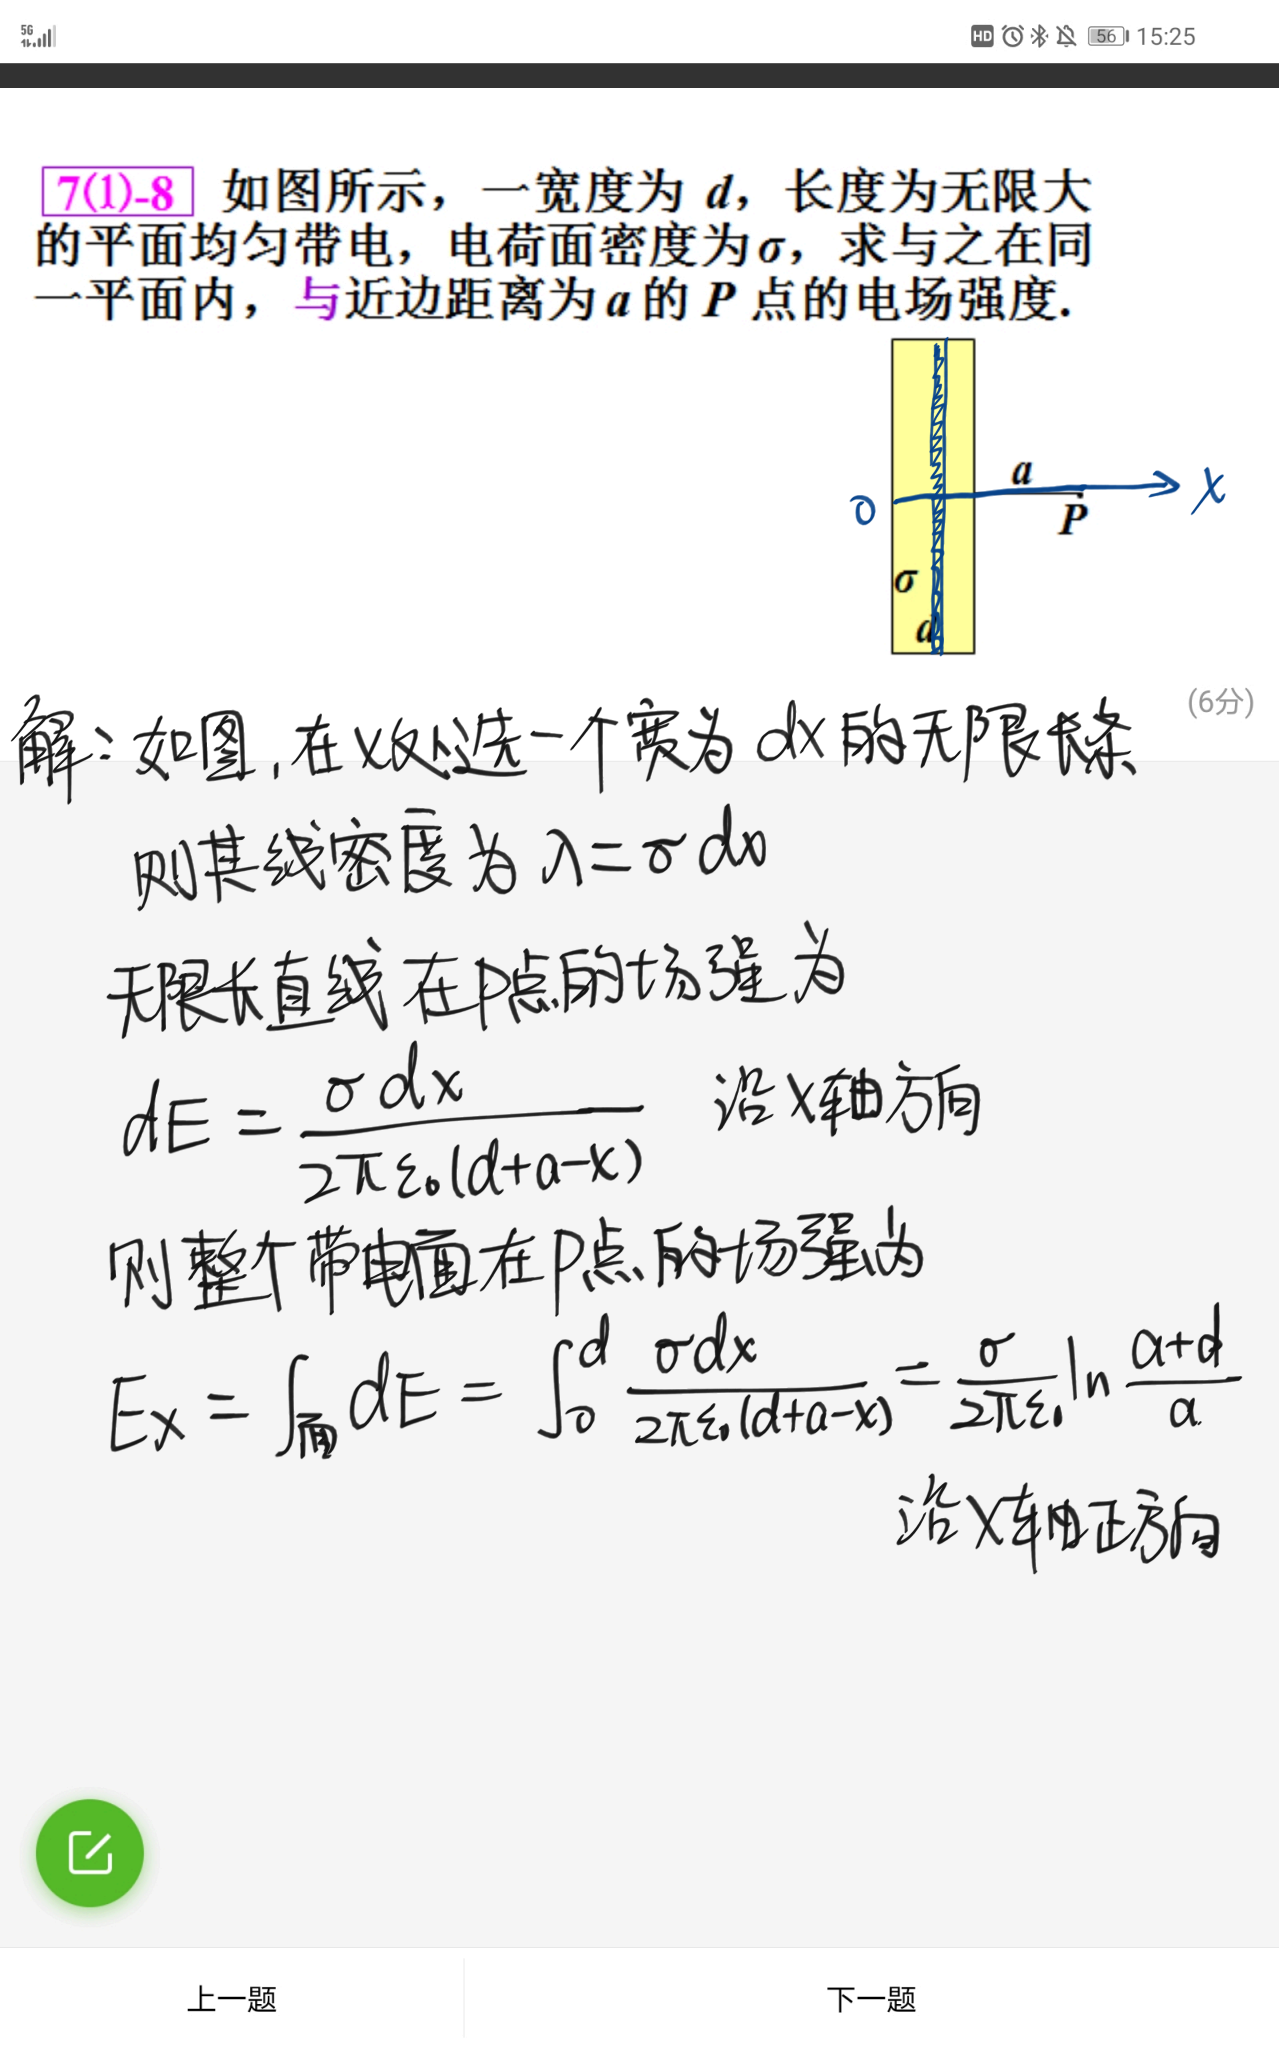 5G
HD 56 15:25
7(1)-8 如图所示，一宽度为 d，长度为无限大
的平面均匀带电，电荷面密度为σ，求与之在同
一平面内，与近边距离为 a 的 P 点的电场强度.
a
O X
P
σ
d
(6分)
解：如图，在x处选一个宽为 dx 的无限长条
则其线密度为 λ=σdx
无限长直线在P点的场强为
dE = σdx / 2πε₀(d+a-x) 沿X轴方向
则整个带电面在P点的场强为
Ex = ∫面 dE = ∫₀ᵈ σdx / 2πε₀(d+a-x) = σ / 2πε₀ ln (a+d) / a
沿X轴正方向
上一题 下一题